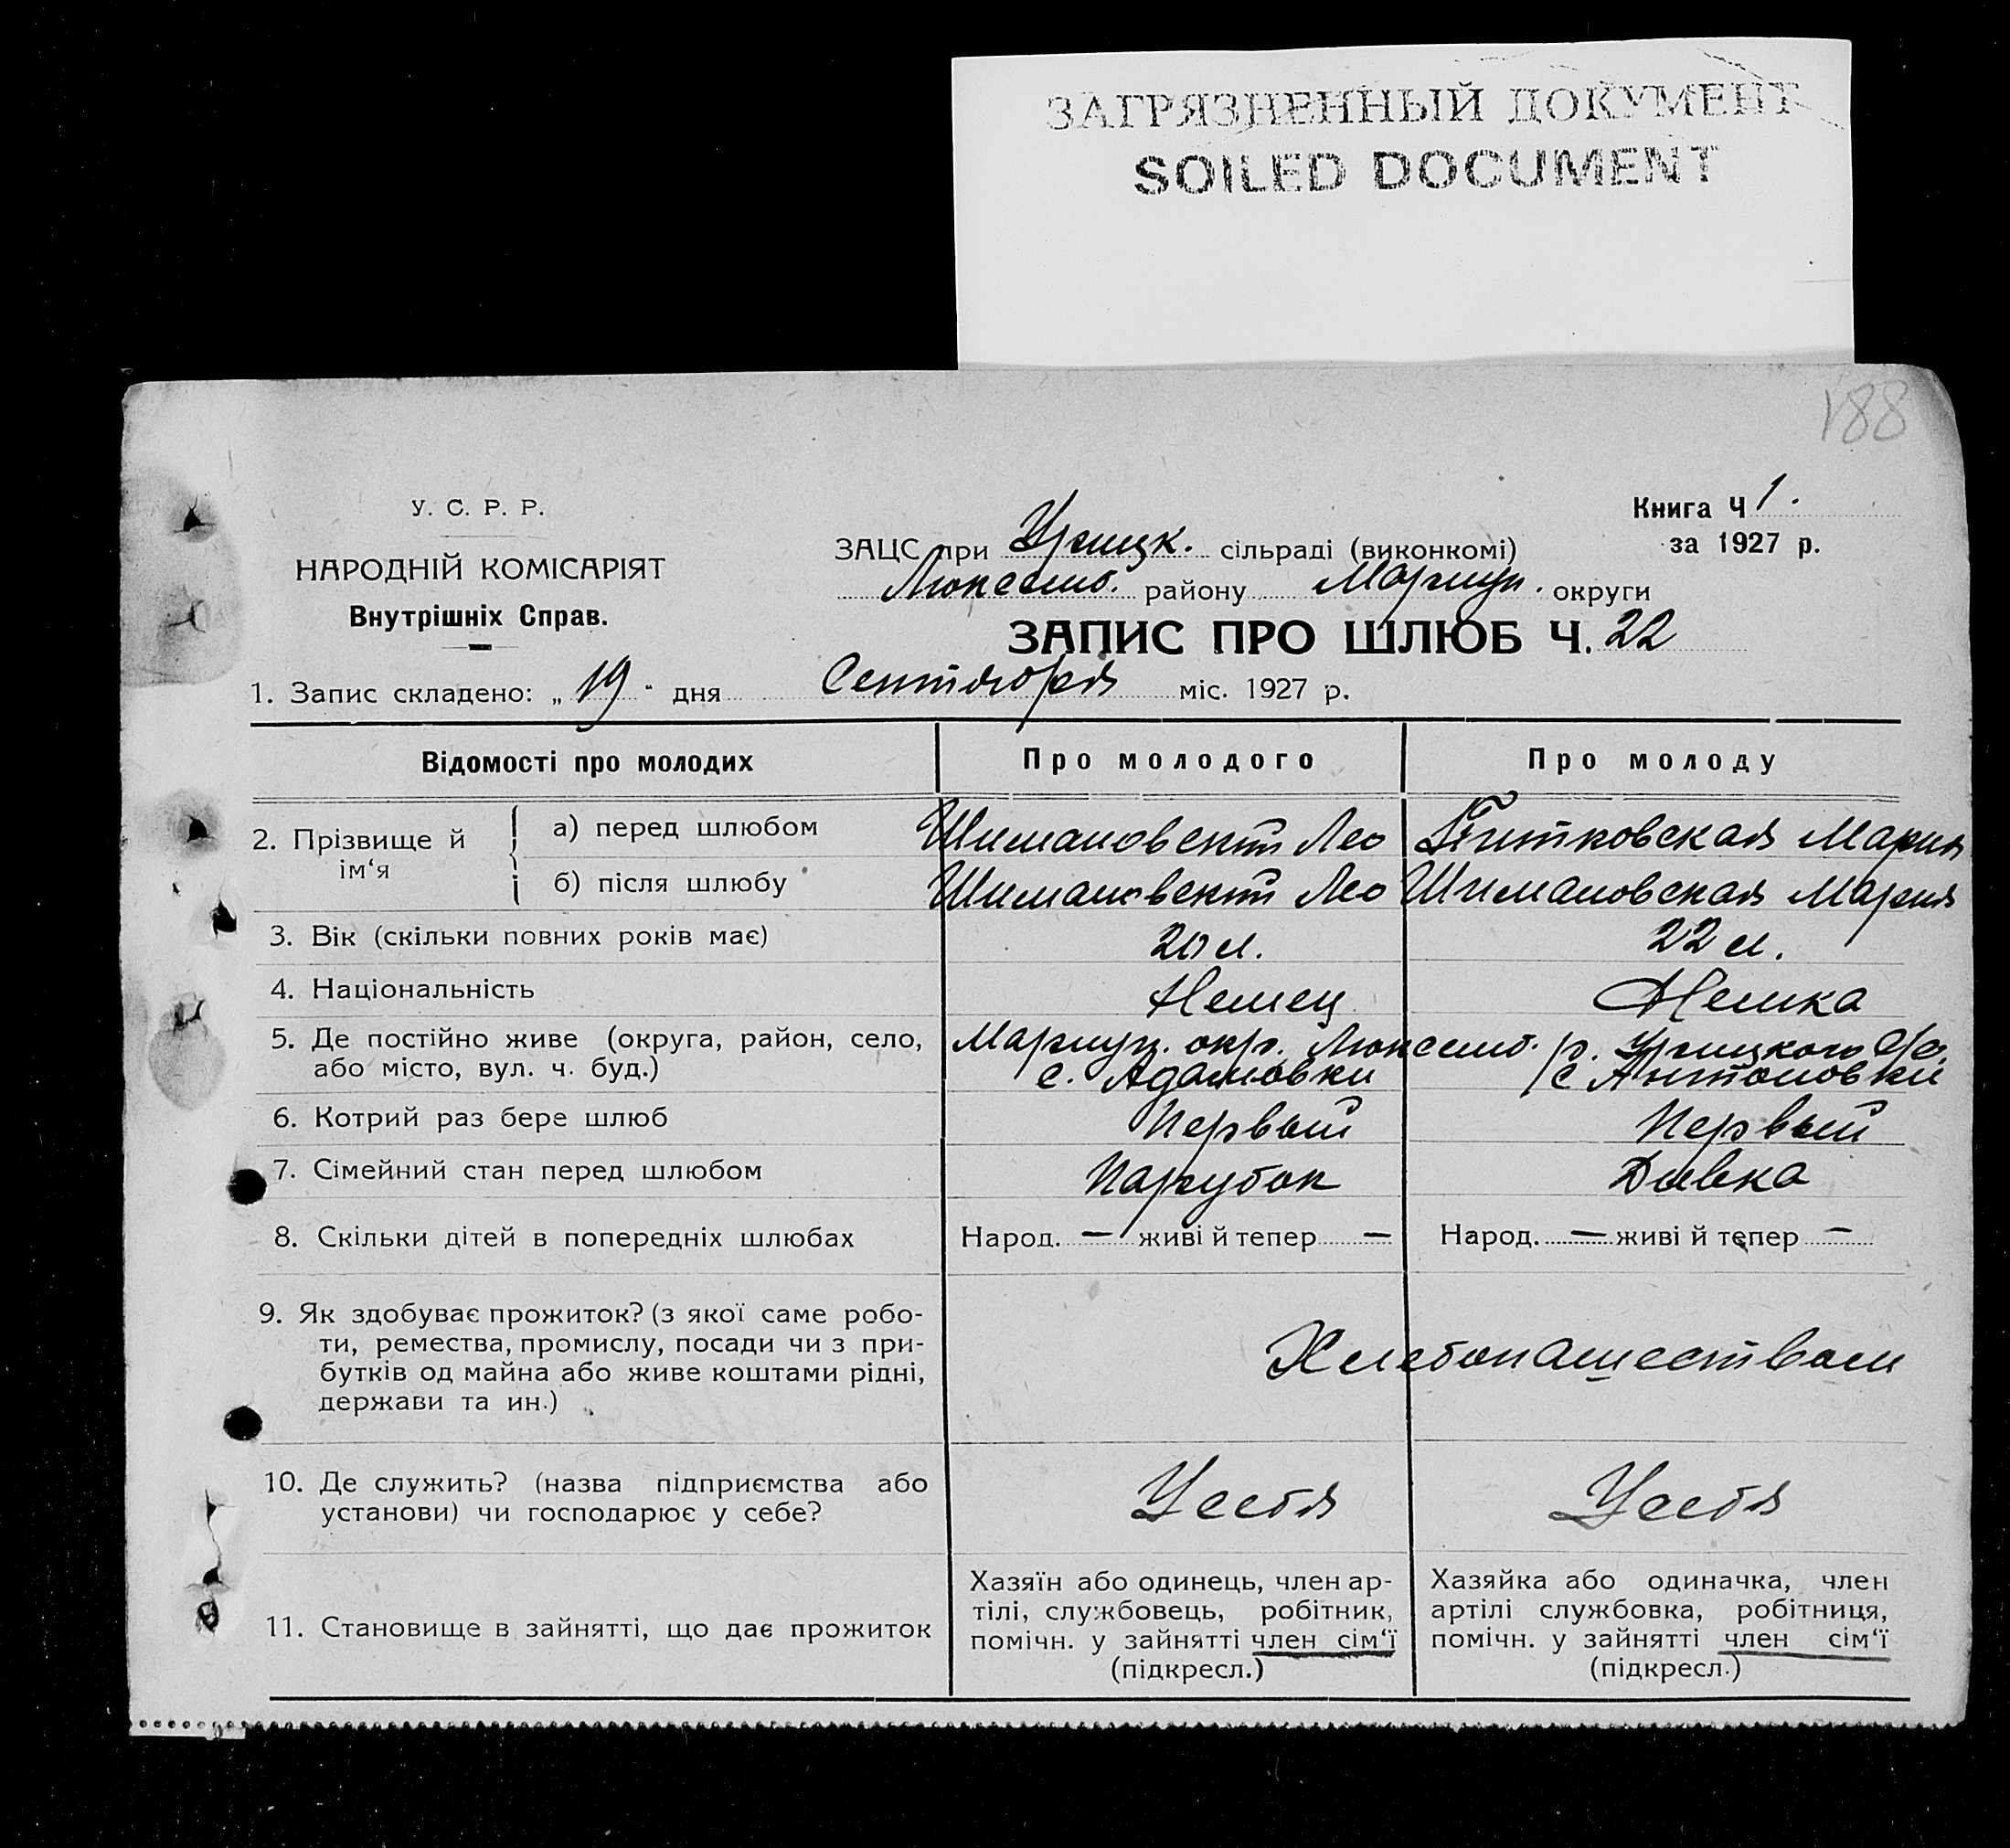 ЗАГРЯЗНЕННЫЙ ДОКУМЕНТ
SOILED DOCUMENT
188
У. С. Р. Р.
НАРОДНІЙ КОМІСАРІЯТ
Внутрішніх Справ.
Книга Ч 1.
за 1927 р.
ЗАЦС при Урицк. сільраді (виконкомі)
Люксемб. району Мариуп. округи
ЗАПИС ПРО ШЛЮБ Ч. 22
1. Запис складено: „ 19 " дня Сентября міс. 1927 р.
Відомості про молодих Про молодого Про молоду
2. Прізвище й ім‘я
а) перед шлюбом Шимановский Лео Мария
б) після шлюбу Шимановский Лео Шимановская Мария
3. Вік (скільки повних років має) 20 л. 22 л.
4. Національність Немец Немка
5. Де постійно живе (округа, район, село, Мариуп. окр. Люксемб. р. Урицкого с/с.
або місто, вул. ч. буд.) с. Адамовки с Антоновки
6. Котрий раз бере шлюб Первый Первый
7. Сімейний стан перед шлюбом Парубок Дивка
8. Скільки дітей в попередніх шлюбах Народ. — живі й тепер — Народ. — живі й тепер —
9. Як здобуває прожиток? (з якої саме робо-
ти, ремества, промислу, посади чи з при-
бутків од майна або живе коштами рідні,
держави та ин.)
Хлебопашеством
10. Де служить? (назва підприємства або
установи) чи господарює у себе?
У себя У себя
11. Становище в зайнятті, що дає прожиток
Хазяїн або одинець, член ар-
тілі, службовець, робітник,
помічн. у зайнятті член сім‘ї
(підкресл.)
Хазяйка або одиначка, член
артілі службовка, робітниця,
помічн. у зайнятті член сім‘ї
(підкресл.)